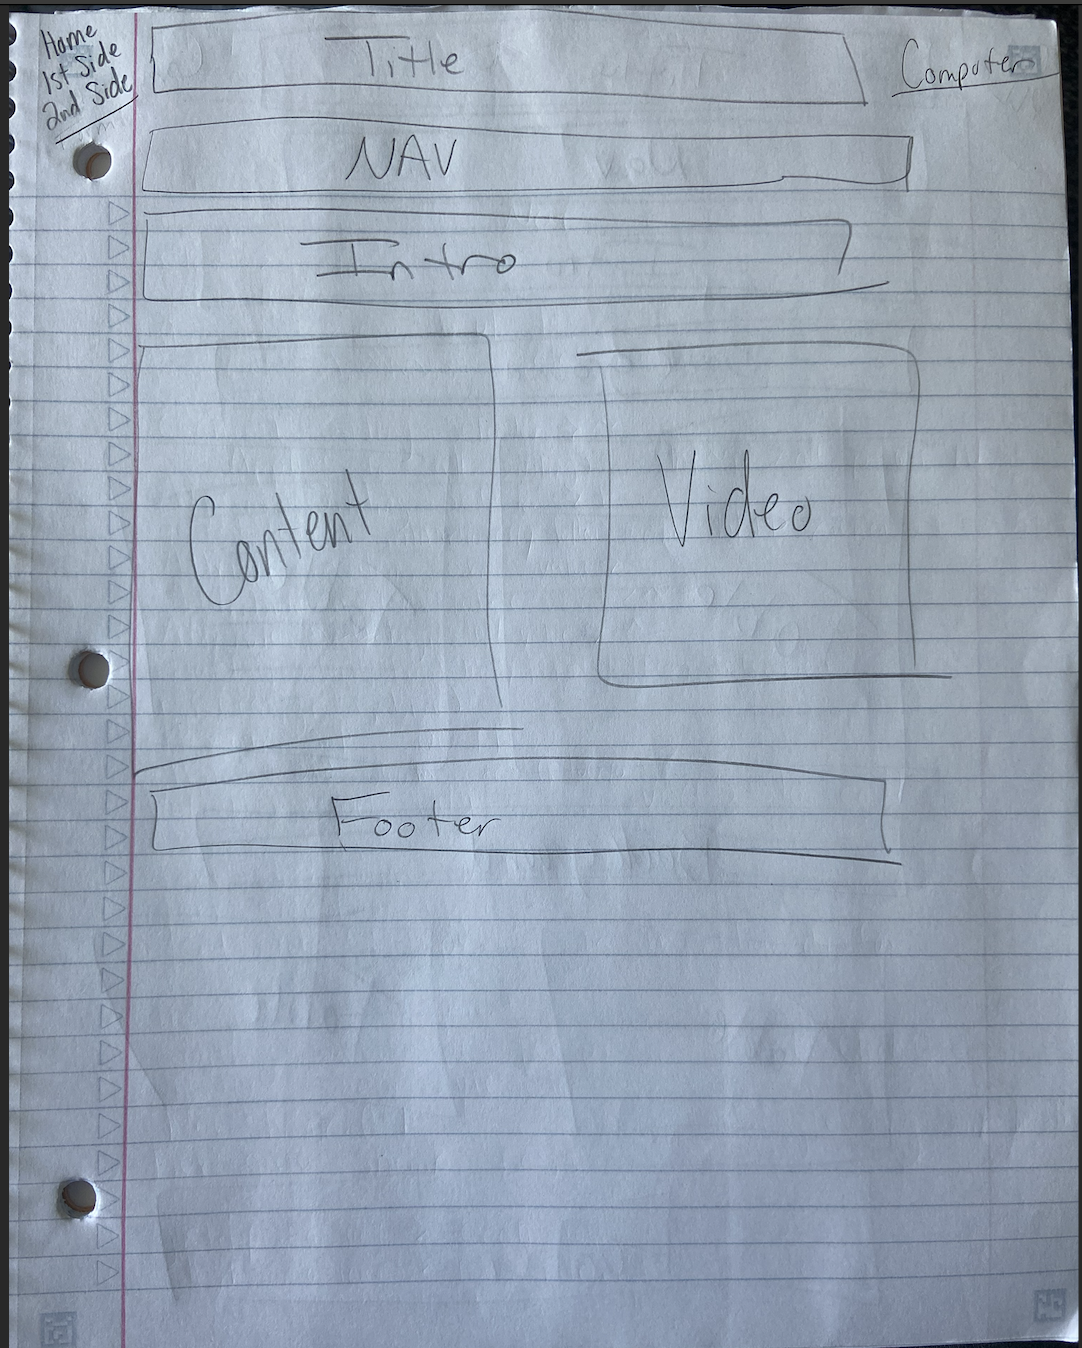 Home
1st Side
2nd Side
Title
Computer
NAV
Intro
Content
Video
Footer